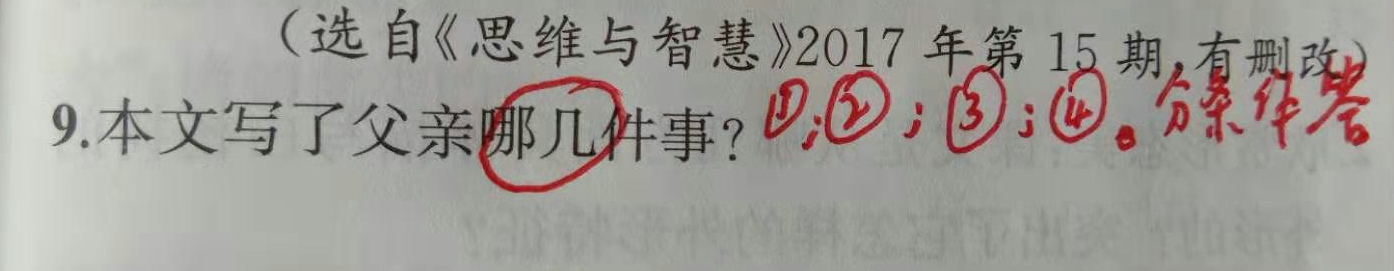 （选自《思维与智慧》2017年第15期，有删改）
9.本文写了父亲哪几件事？①；②；③；④。分条作答